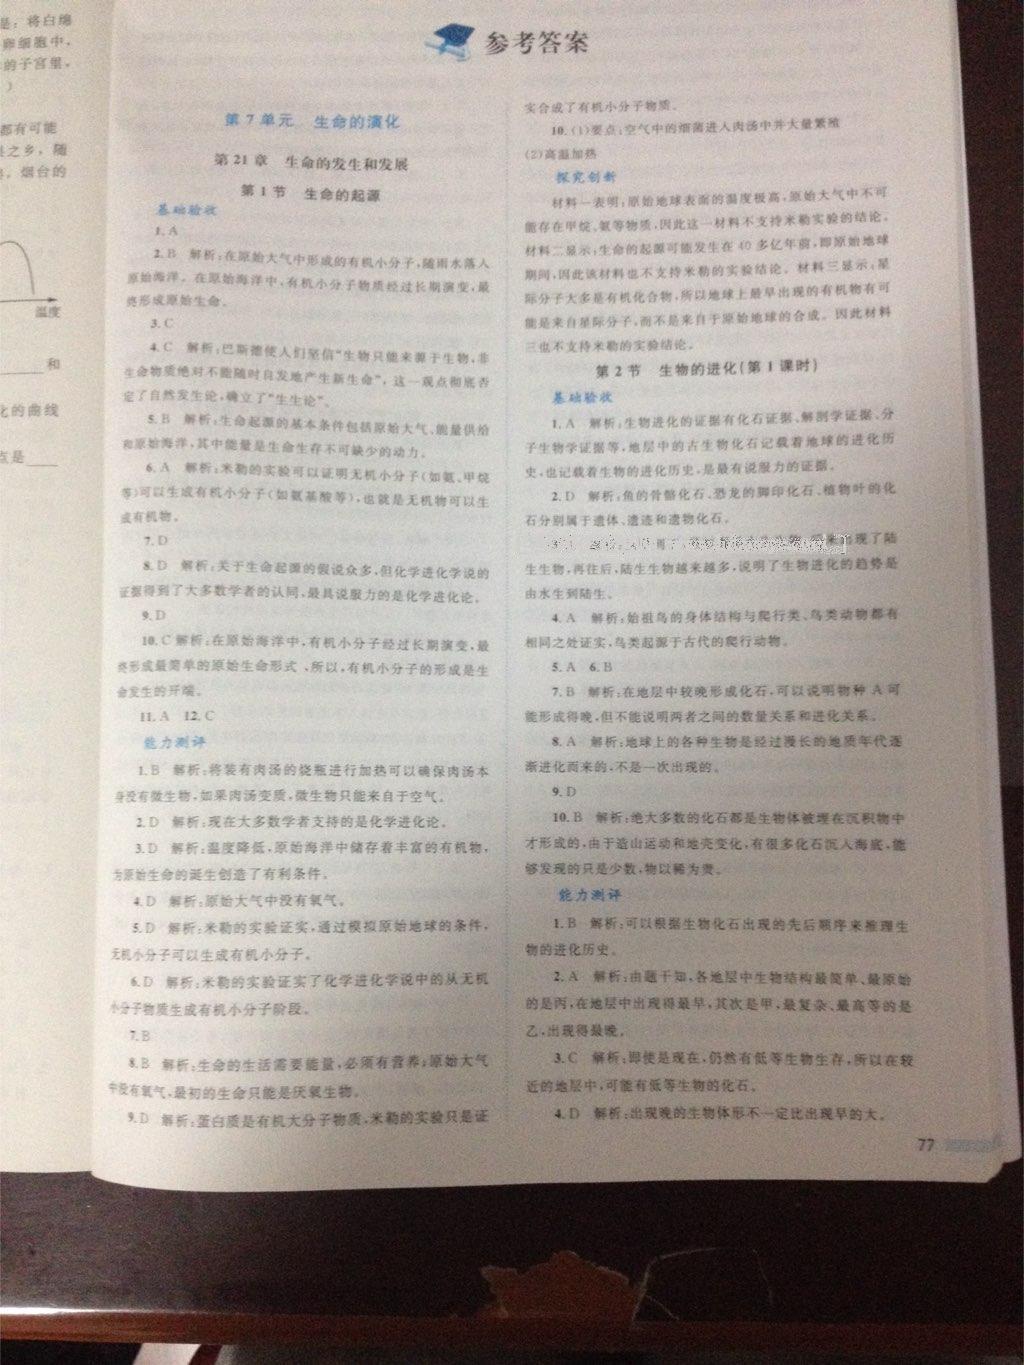 是：将白绵
卵细胞中，
的子宫里，
）
都有可能
县之乡，随
，烟台的
温度
和
化的曲线
点是
参考答案
第7单元 生命的演化
第21章 生命的发生和发展
第1节 生命的起源
基础验收
1. A
2. B 解析：在原始大气中形成的有机小分子，随雨水落入
原始海洋。在原始海洋中，有机小分子物质经过长期演变，最
终形成原始生命。
3. C
4. C 解析：巴斯德使人们坚信“生物只能来源于生物，非
生命物质绝对不能随时自发地产生新生命”，这一观点彻底否
定了自然发生论，确立了“生生论”。
5. B 解析：生命起源的基本条件包括原始大气、能量供给
和原始海洋，其中能量是生命生存不可缺少的动力。
6. A 解析：米勒的实验可以证明无机小分子（如氨、甲烷
等）可以生成有机小分子（如氨基酸等），也就是无机物可以生
成有机物。
7. D
8. D 解析：关于生命起源的假说众多，但化学进化学说的
证据得到了大多数学者的认同，最具说服力的是化学进化论。
9. D
10. C 解析：在原始海洋中，有机小分子经过长期演变，最
终形成最简单的原始生命形式，所以，有机小分子的形成是生
命发生的开端。
11. A 12. C
能力测评
1. B 解析：将装有肉汤的烧瓶进行加热可以确保肉汤本
身没有微生物，如果肉汤变质，微生物只能来自于空气。
2. D 解析：现在大多数学者支持的是化学进化论。
3. D 解析：温度降低，原始海洋中储存着丰富的有机物，
为原始生命的诞生创造了有利条件。
4. D 解析：原始大气中没有氧气。
5. D 解析：米勒的实验证实，通过模拟原始地球的条件，
无机小分子可以生成有机小分子。
6. D 解析：米勒的实验证实了化学进化学说中的从无机
小分子物质生成有机小分子阶段。
7. B
8. B 解析：生命的生活需要能量，必须有营养；原始大气
中没有氧气，最初的生命只能是厌氧生物。
9. D 解析：蛋白质是有机大分子物质，米勒的实验只是证
实合成了有机小分子物质。
10. (1)要点：空气中的细菌进入肉汤中并大量繁殖
(2)高温加热
探究创新
材料一表明：原始地球表面的温度极高，原始大气中不可
能存在甲烷、氨等物质，因此这一材料不支持米勒实验的结论。
材料二显示：生命的起源可能发生在40多亿年前，即原始地球
期间，因此该材料也不支持米勒的实验结论。材料三显示：星
际分子大多是有机化合物，所以地球上最早出现的有机物有可
能是来自星际分子，而不是来自于原始地球的合成。因此材料
三也不支持米勒的实验结论。
第2节 生物的进化（第1课时）
基础验收
1. A 解析：生物进化的证据有化石证据、解剖学证据、分
子生物学证据等，地层中的古生物化石记载着地球的进化历
史，也记载着生物的进化历史，是最有说服力的证据。
2. D 解析：鱼的骨骼化石、恐龙的脚印化石、植物叶的化
石分别属于遗体、遗迹和遗物化石。
来出现了陆
生生物，再往后，陆生生物越来越多，说明了生物进化的趋势是
由水生到陆生。
4. A 解析：始祖鸟的身体结构与爬行类、鸟类动物都有
相同之处证实，鸟类起源于古代的爬行动物。
5. A 6. B
7. B 解析：在地层中较晚形成化石，可以说明物种A可
能形成得晚，但不能说明两者之间的数量关系和进化关系。
8. A 解析：地球上的各种生物是经过漫长的地质年代逐
渐进化而来的，不是一次出现的。
9. D
10. B 解析：绝大多数的化石都是生物体被埋在沉积物中
才形成的，由于造山运动和地壳变化，有很多化石沉入海底，能
够发现的只是少数，物以稀为贵。
能力测评
1. B 解析：可以根据生物化石出现的先后顺序来推理生
物的进化历史。
2. A 解析：由题干知，各地层中生物结构最简单、最原始
的是丙，在地层中出现得最早，其次是甲，最复杂、最高等的是
乙，出现得最晚。
3. C 解析：即使是现在，仍然有低等生物生存，所以在较
近的地层中，可能有低等生物的化石。
4. D 解析：出现晚的生物体形不一定比出现早的大。
77